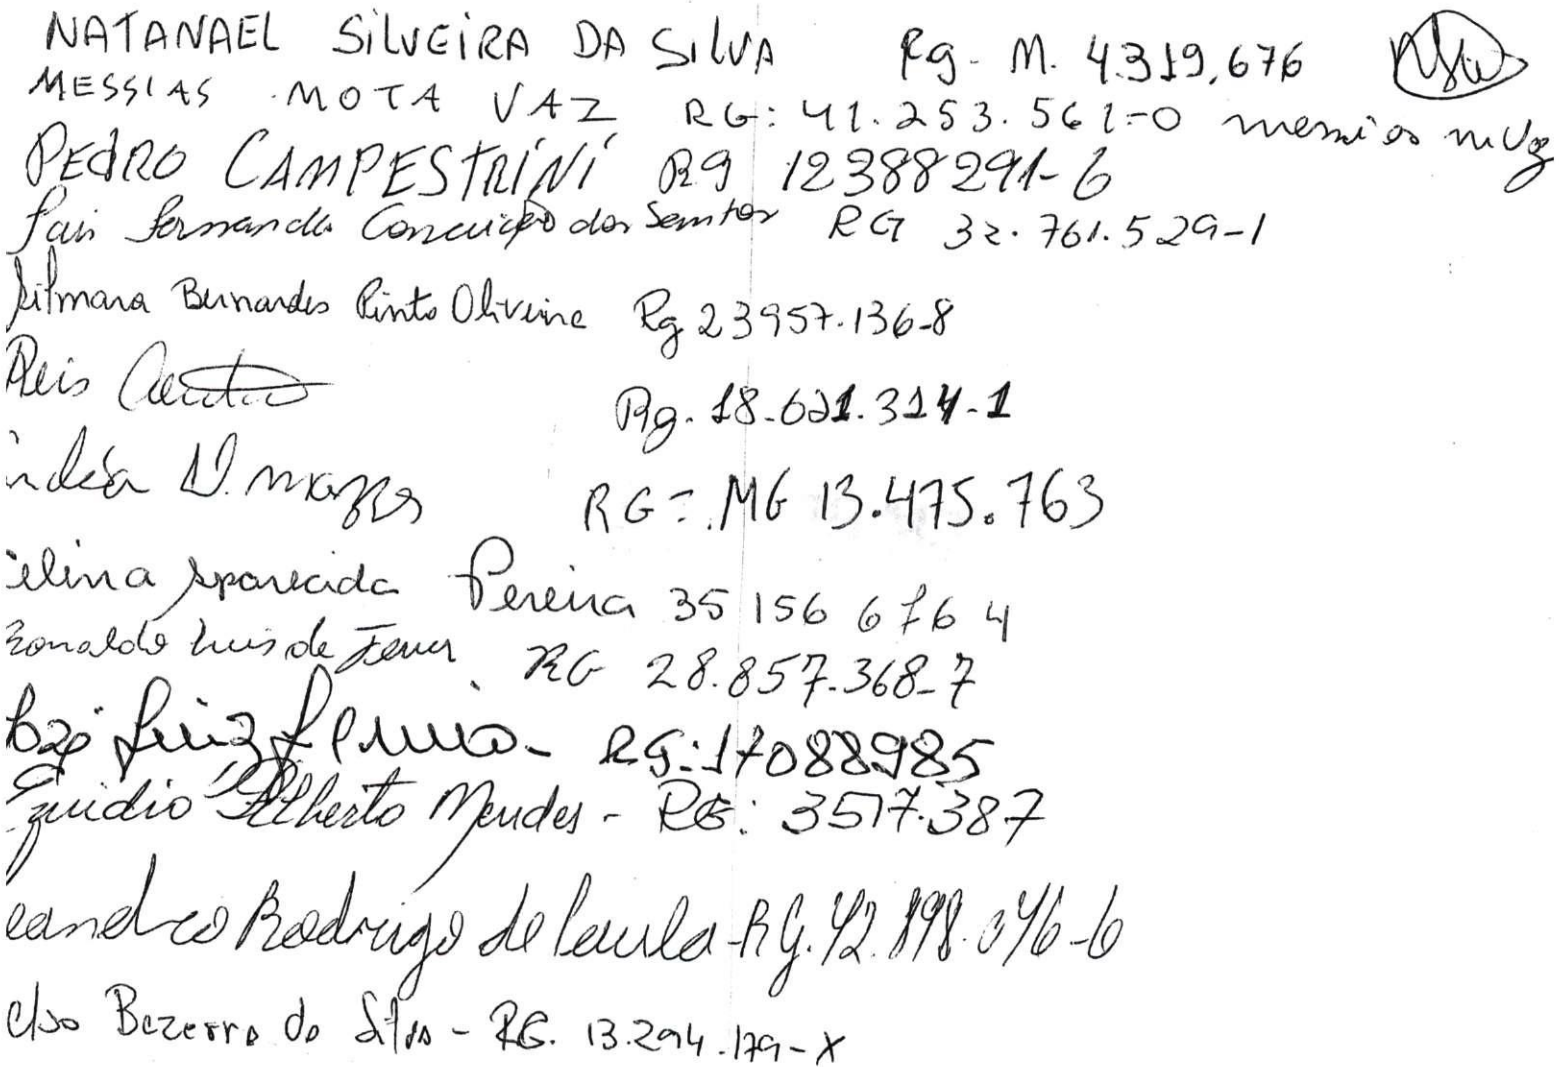 NATANAEL SILVEIRA DA SILVA Rg. M. 4.319,676
MESSIAS MOTA VAZ RG: 41.253.561-0 messias m Vaz
PEDRO CAMPESTRINI RG 12388291-6
Fernanda Conceição dos Santos RG 32.761.529-1
Bernardes Pinto Oliveira Rg 23957.136-8
Reis Rg. 18.621.314-1
RG=. MG 13.475.763
elina Aparecida Pereira 35 156 676 4
Ronaldo Luis de RG 28.857.368-7
Luiz RG: 17088985
Alberto Mendes - RG: 3517.387
eandro Rodrigo de Paula - RG. 42.898.046-6
elso Bezerra da Silva - RG. 13.294.179-X